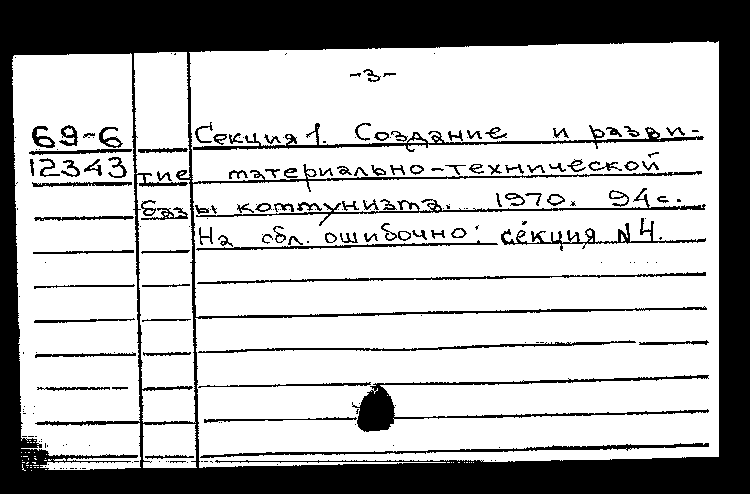 -3-
69-6 Секция 1. Создание и разви-
12343 тие материально-технической
базы коммунизма. 1970. 94 с.
На обл. ошибочно: секция N 4.